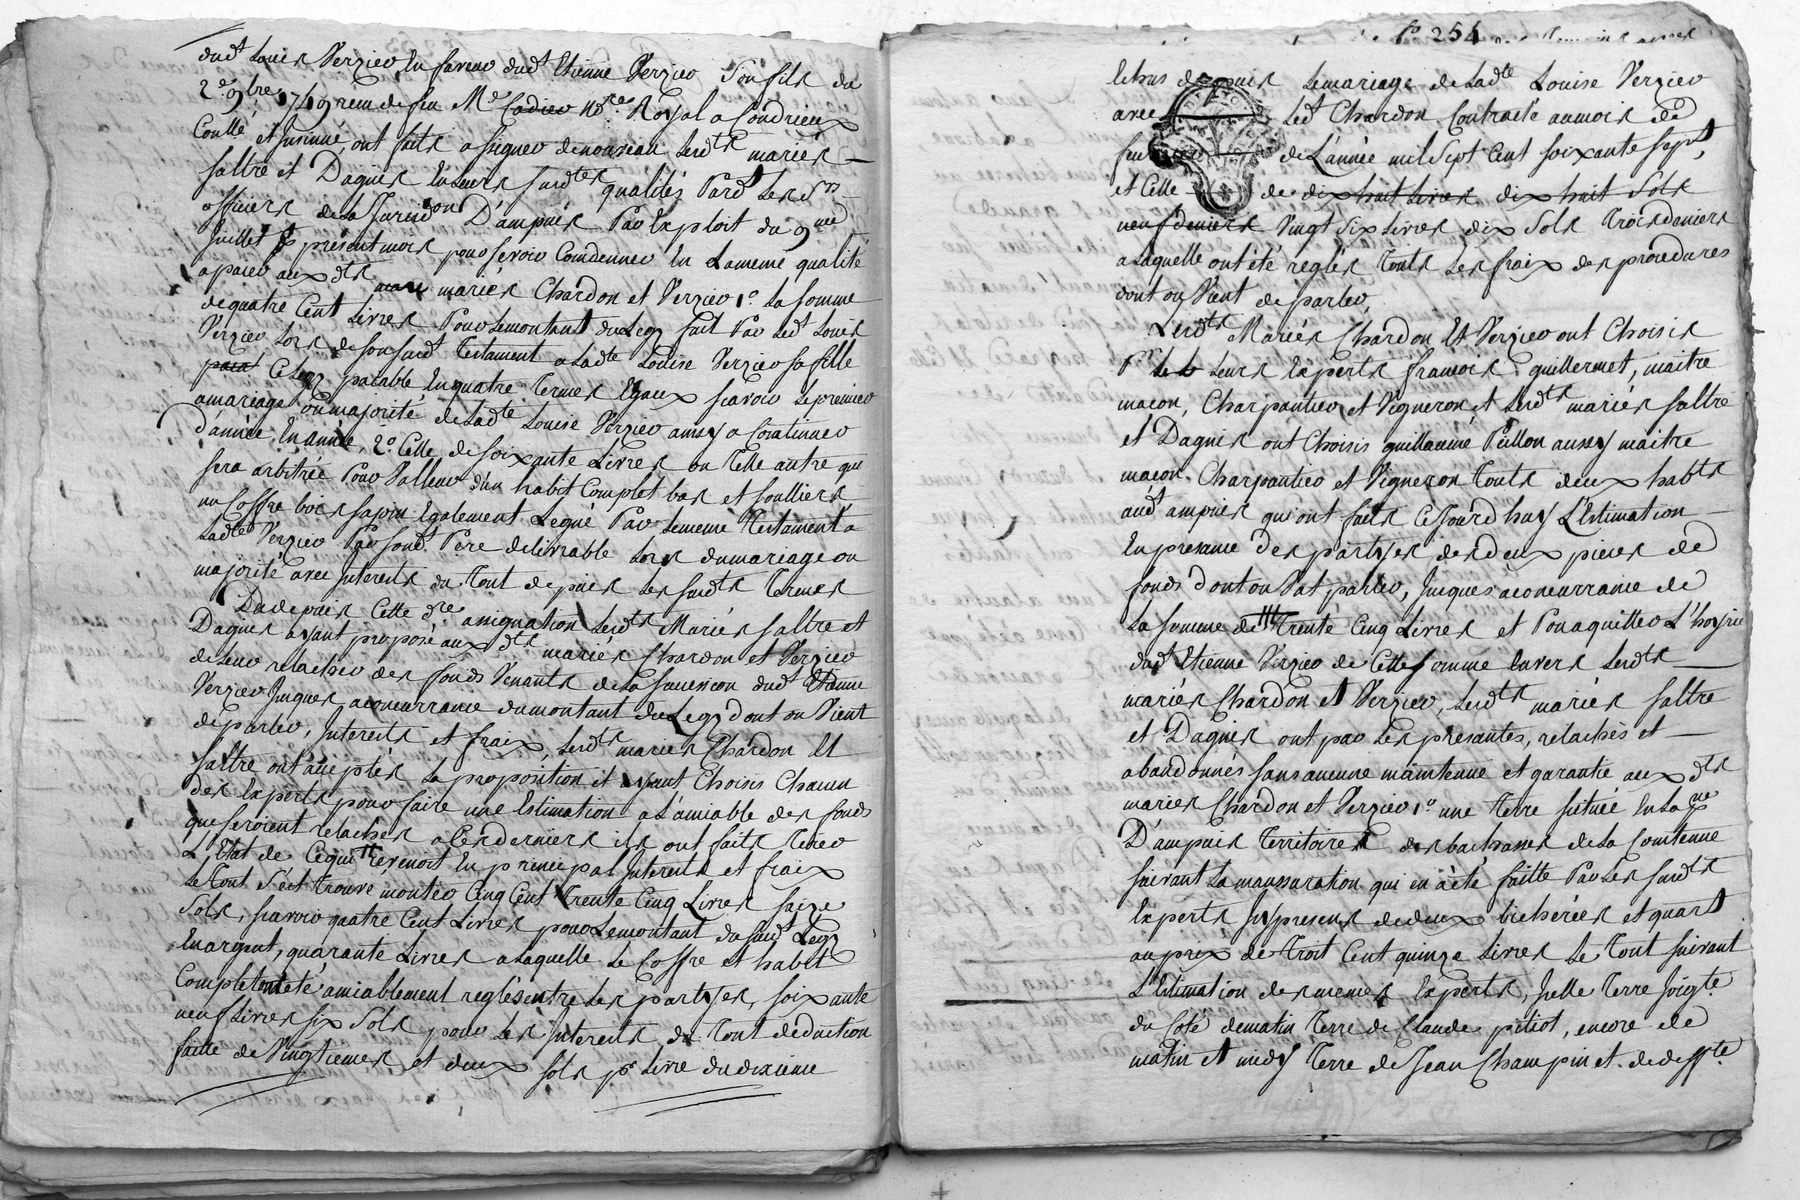 dudt Louis Verzieu En faveur dudt Etienne Verzieu Son fils du
2e. 9bre. 1749 reçu de feu Me Cadieu Nore. Royal a Condrieu
Collé et Insinué, ont faits assigner denouveau Lesdts mariés
faltre et Dagnier En leurs susdtes qualités Pardt Les Srs
officiers de la Juridon D'ampuis Par Exploit du 9me
Juillet present mois pour se voir Comdenner En La meme qualité
apaier aux dts mariés Chardon et Verzieu 1o. La somme
de quatre Cent Livres Pour Lemontant du Legs fait Par Ledt Louis
Verzieu Lors de son susdt Testament a Ladte Louise Verzieu sa fille
Ce Legs paiable En quatre Termes Egaux scavoir Lepremier
amariage ou majorité de Ladte Louise Verzieu ainsy a Continuer
d'année En Année, 2o. Celle de soixante Livres ou Telle autre qui
sera arbitrée Pour Valleur d'un habit Complet bas et soulliers
un Coffre bois sapin Egalement Legué Par Lememe Testament a
Ladte Verzieu Par sondt Pere delivrable Lors dumariage ou
majorité avec Interets du Tout depuis Les susdts Termes
Dudepuis Cette dre assignation Lesdts Mariés faltre et
Dagnier ayant proposé aux dts mariés Chardon et Verzieu
de Leur relacher des fonds Venants de la succession dudt Etienne
Verzieu Jusques aconcurrance dumontant du Legs dont on Vient
deparler, Interets et frais, Lesdts mariés Chardon Et
faltre ont acceptés La proposition et ayant Choisis Chacun
des Experts pour faire une Estimation a L'amiable des fonds
que seroient relachés a Cesderniers ils ont faits Tirer
L'Etat de Cequi Revenoit En principal Interets et frais
Le Tout S'est Trouvé monter Cinq Cent Trente Cinq Livres seize
Sols, scavoir quatre Cent Livres pour Lemontant du susdt Legs
En argent, quarante Livres a Laquelle Le Coffre et habit
Complet ont eté amiablement reglés entre Les parties, soixante
neuf Livres six Sols pour Les Interets du Tout déduction
faitte de Vingtiemes et deux sols pr Livre du dixieme
fo. 254
Echus depuis Lemariage de Ladte Louise Verzieu
avec Ledt Chardon Contracté aumois de
fevrier de L'année mil Sept Cent soixante sept,
et Celle de dix huit Livres dix huit Sols
neuf deniers Vingt Six Livres dix Sols Trois deniers
a Laquelle ont été reglés Touts Les frais des procedures
dont on Vient de parler,
Lesdts Mariés Chardon Et Verzieu ont Choisis
Pr Leurs Experts francois guillermet, maitre
macon, Charpantier et Vigneron et Lesdts mariés faltre
et Dagnier ont Choisis guillaume Pillon aussy maitre
macon Charpantier et Vigneron Touts deux habts
audt ampuis qui ont faits Cejourd'huy L'Estimation
En presance des parties desdeux pieces de
fonds dont on Vat parler, Jusques aconcurrance de
La somme de Trente Cinq Livres et Pour aquitter L'hoirie
dudt Etienne Verzieu de Cette somme Envers Lesdts
mariés Chardon et Verzieu, Lesdts mariés faltre
et Dagnier ont par Les presantes, relachés et
abandonnés sans aucune maintenue et garantie aux dts
mariés Chardon et Verzieu 1o. une Terre située En La pne
D'ampuis Territoire des bachasses de La Contenue
suivant La mansuration qui en a été faitte Par Les susdts
Experts Jcy presens de deux bicherées et quart
au prix de Trois Cent quinze Livres Le Tout suivant
L'Estimation desmemes Experts, Jcelle Terre Joigte.
du Coté dematin Terre de Claude pitiot, encore de
matin et midy Terre de Jean Champin et de